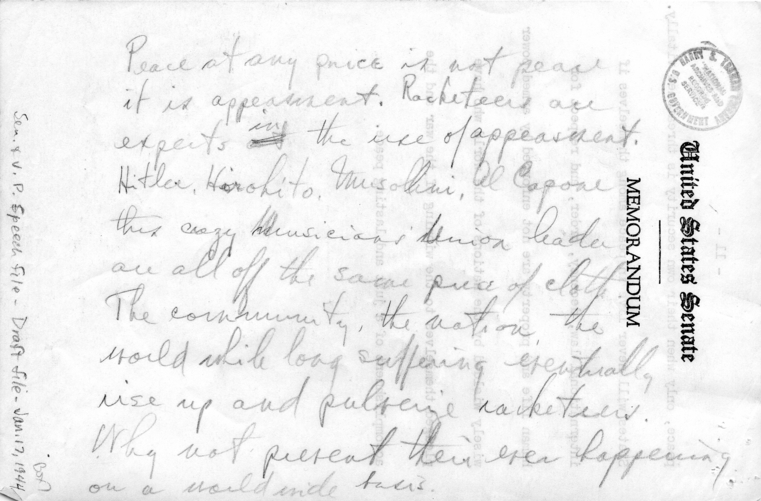 Peace at any price is not peace
it is appeasment. Racketeers are
experts in the use of appeasment.
Hitler, Hirohito, Musolini, Al Capone
this crazy Musicians' Union leader
are all off the same piece of cloth
The community, the nation, the
world while long suffering eventually
rise up and pulverize racketeers.
Why not prevent their ever happening
on a world wide basis.
United States Senate
MEMORANDUM
Sen. & V. P. Speech File - Draft File - Jan. 17, 1944
Box
HARRY S. TRUMAN LIBRARY
"NATIONAL
ARCHIVES AND
RECORDS
SERVICE"